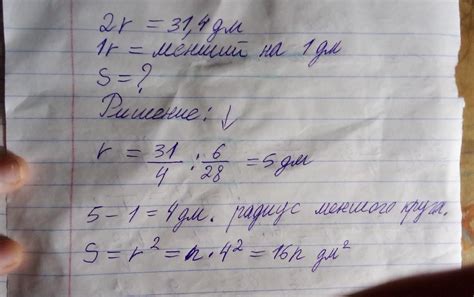 2r = 31,4 дм
1r = менший на 1 дм
S = ?
Решение: ↓
r = 31/4 : 6/28 = 5 дм
5 - 1 = 4 дм. радиус меншого круга.
S = r² = п · 4² = 16п дм²